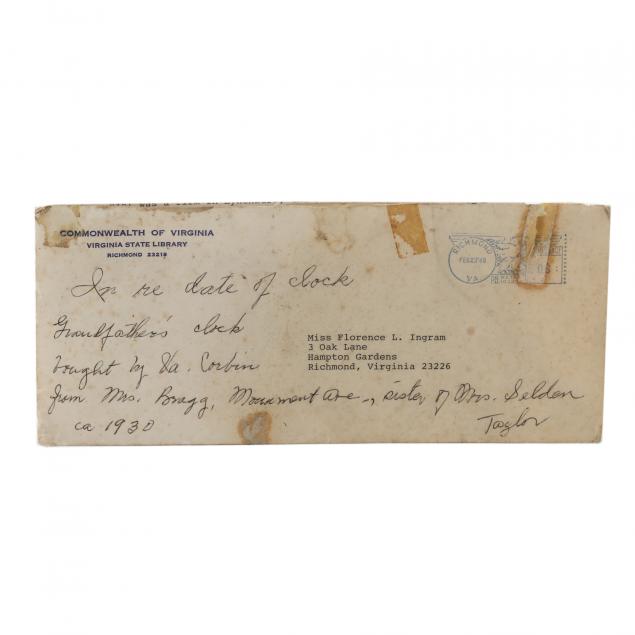 was a firm in
COMMONWEALTH OF VIRGINIA
VIRGINIA STATE LIBRARY
RICHMOND 23219
RICHMOND
VA.
In re date of clock
Grandfather's clock
bought by Va. Corbin
from Mrs. Bragg, Monument Ave., sister of Mrs. Selden
Taylor
ca 1930
Miss Florence L. Ingram
3 Oak Lane
Hampton Gardens
Richmond, Virginia 23226